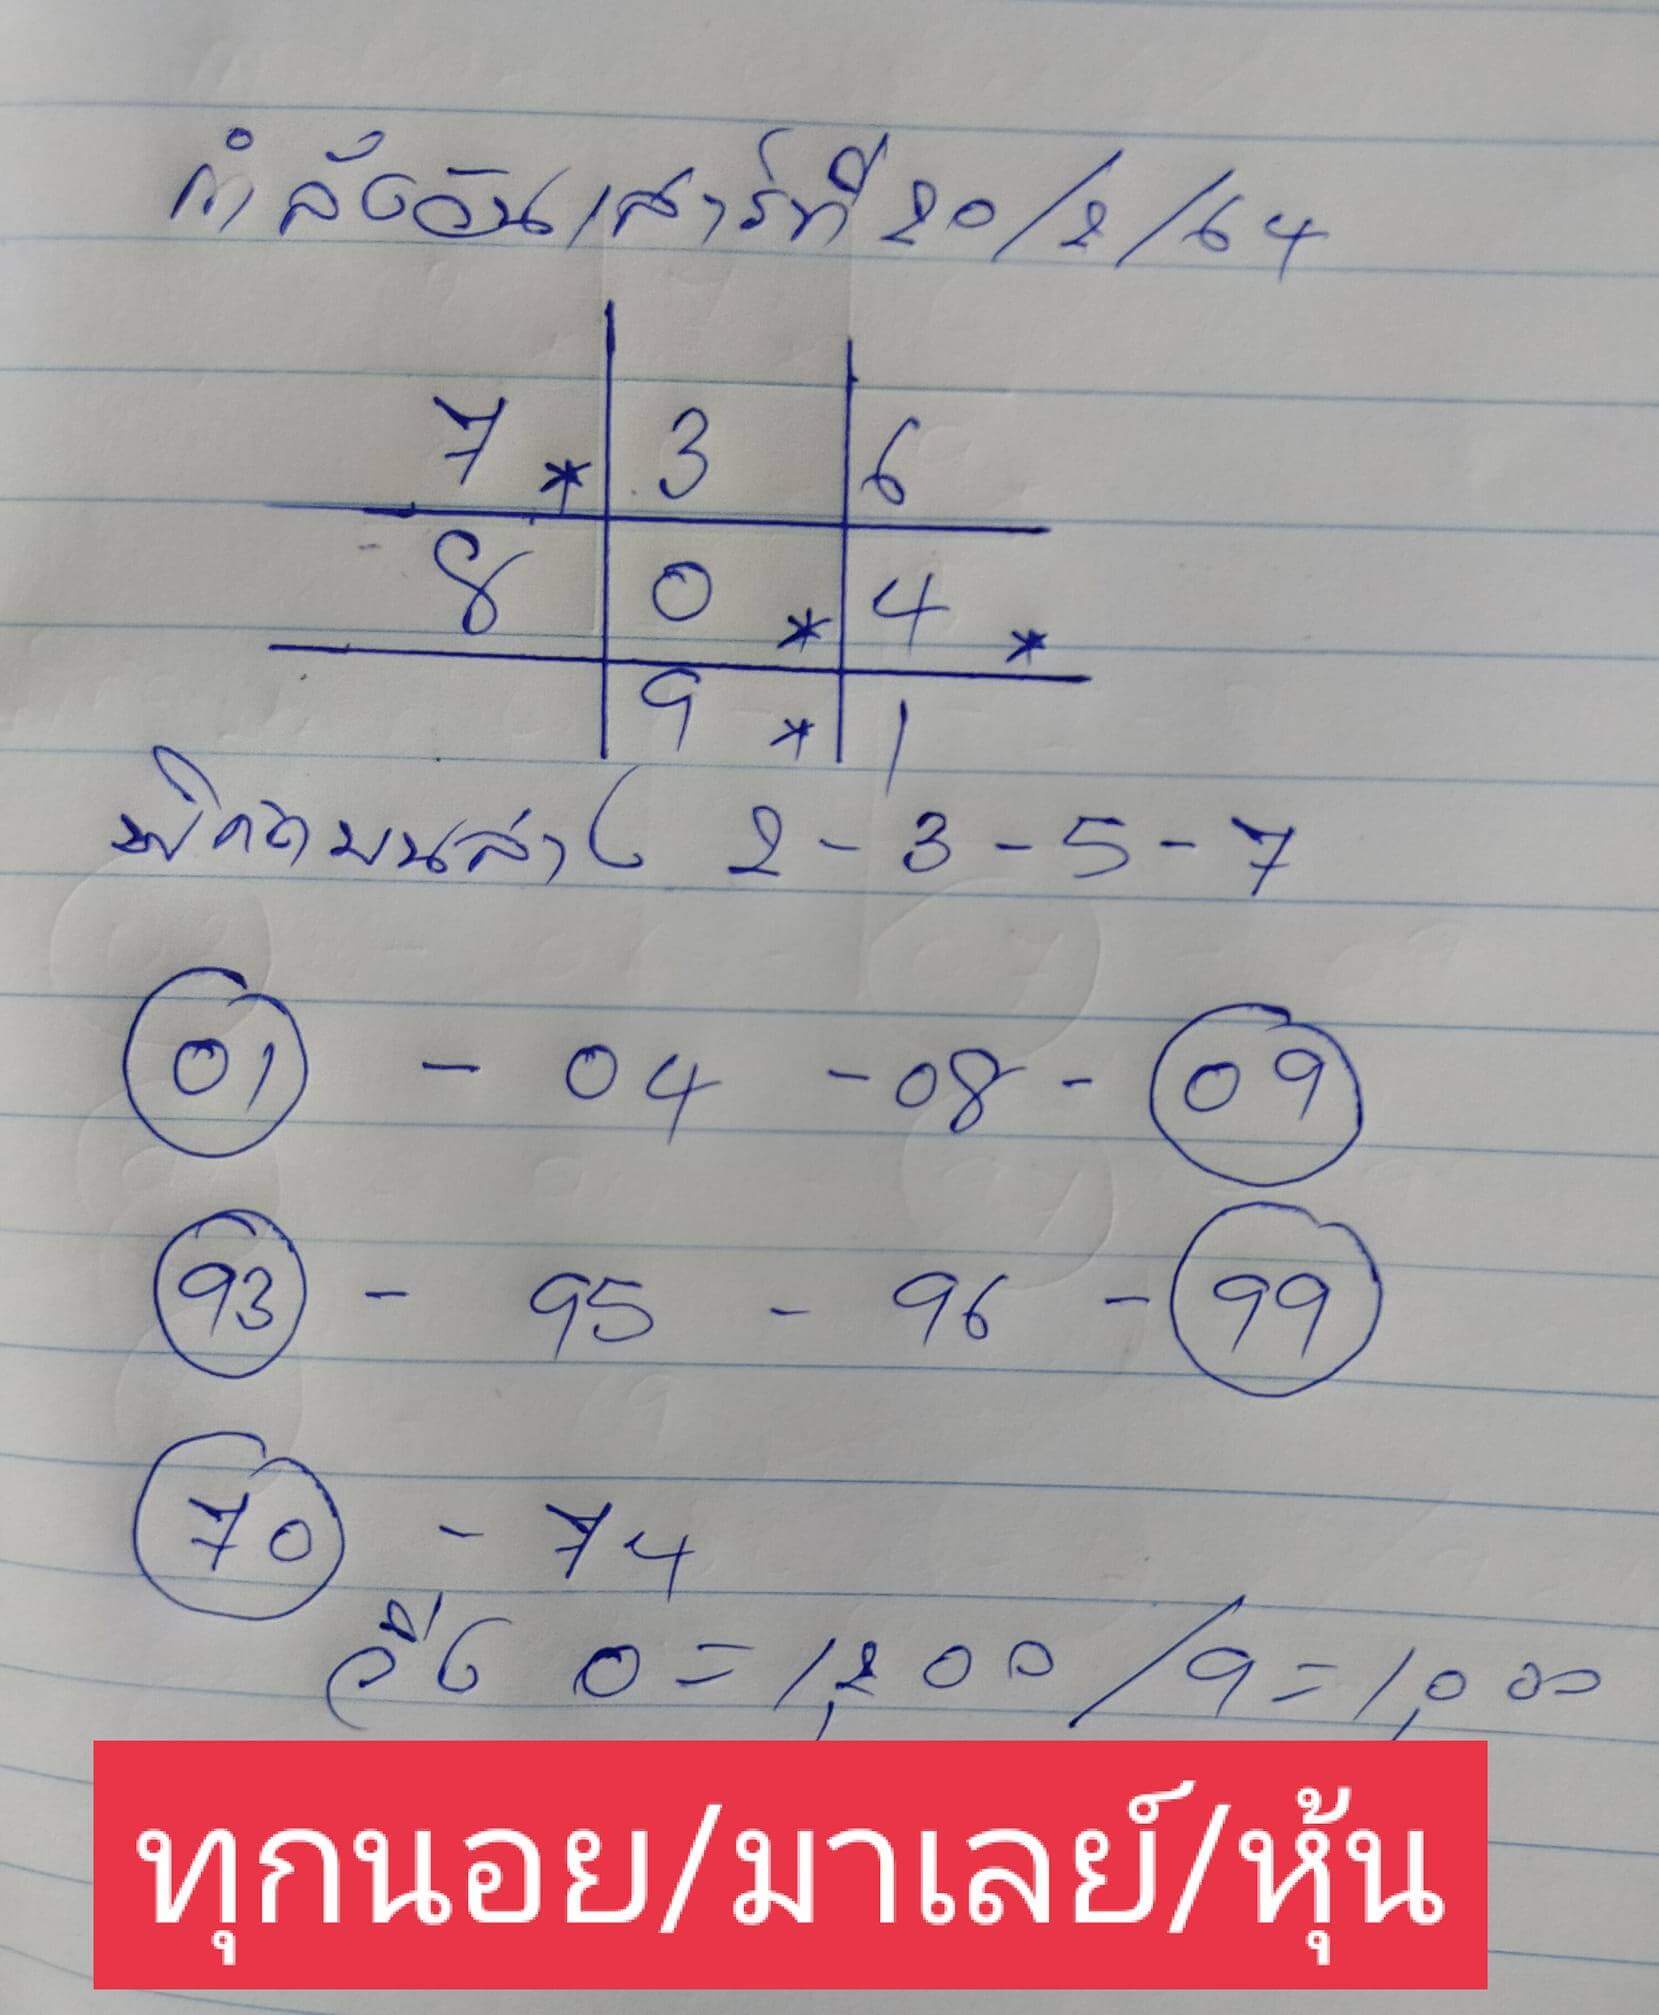 กำลังวันเสาร์ที่ 20/2/64
7 * 3 6
8 0 * 4 *
9 * 1
พิกัดบนล่าง 2 - 3 - 5 - 7
01 - 04 - 08 - 09
93 - 95 - 96 - 99
70 - 74
วิ่ง 0 = 1,200 / 9 = 1,000
ทุกนอย/มาเลย์/หุ้น